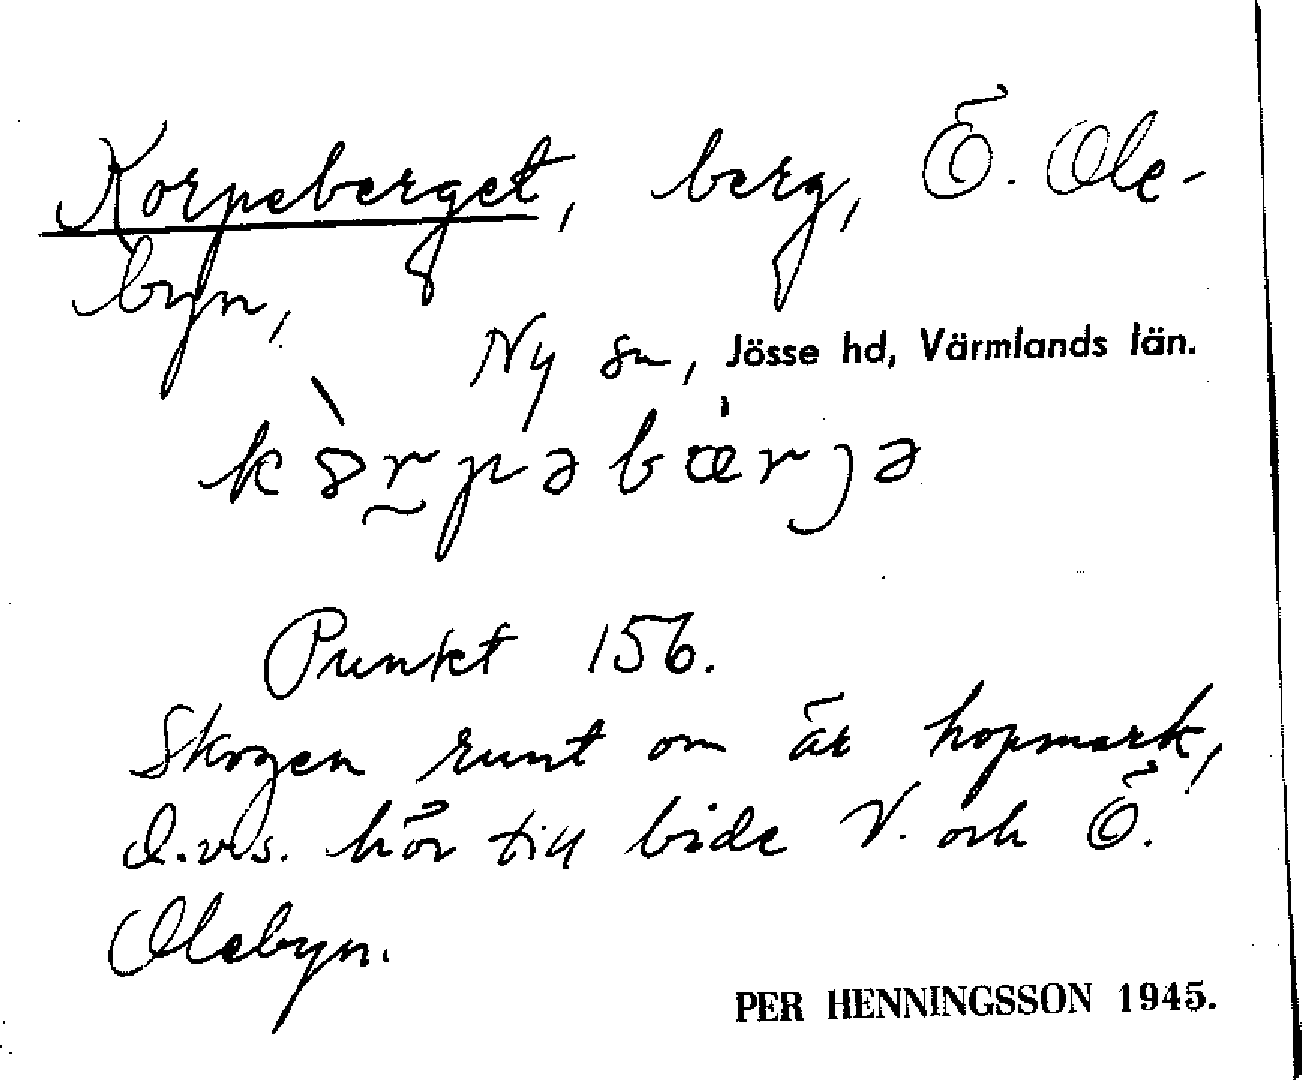 Korpeberget, berg, Ö. Ole-
byn,
Ny sn, Jösse hd, Värmlands län.
kò̰rpəbæ̀rjə
Punkt 156.
Skogen runt om är hopmark,
d.v.s. hör till både V. och Ö.
Olebyn.
PER HENNINGSSON 1945.